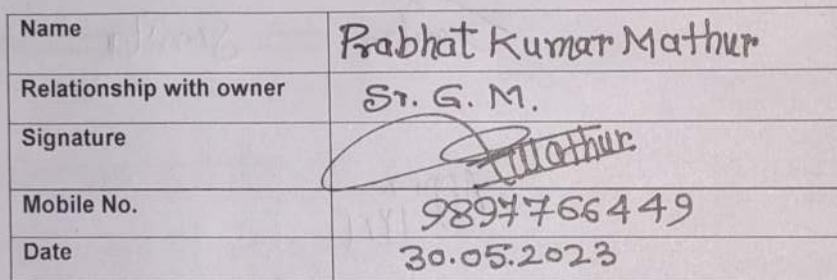 Name Prabhat Kumar Mathur
Relationship with owner Sr. G. M.
Signature Mathur
Mobile No. 9897766449
Date 30.05.2023